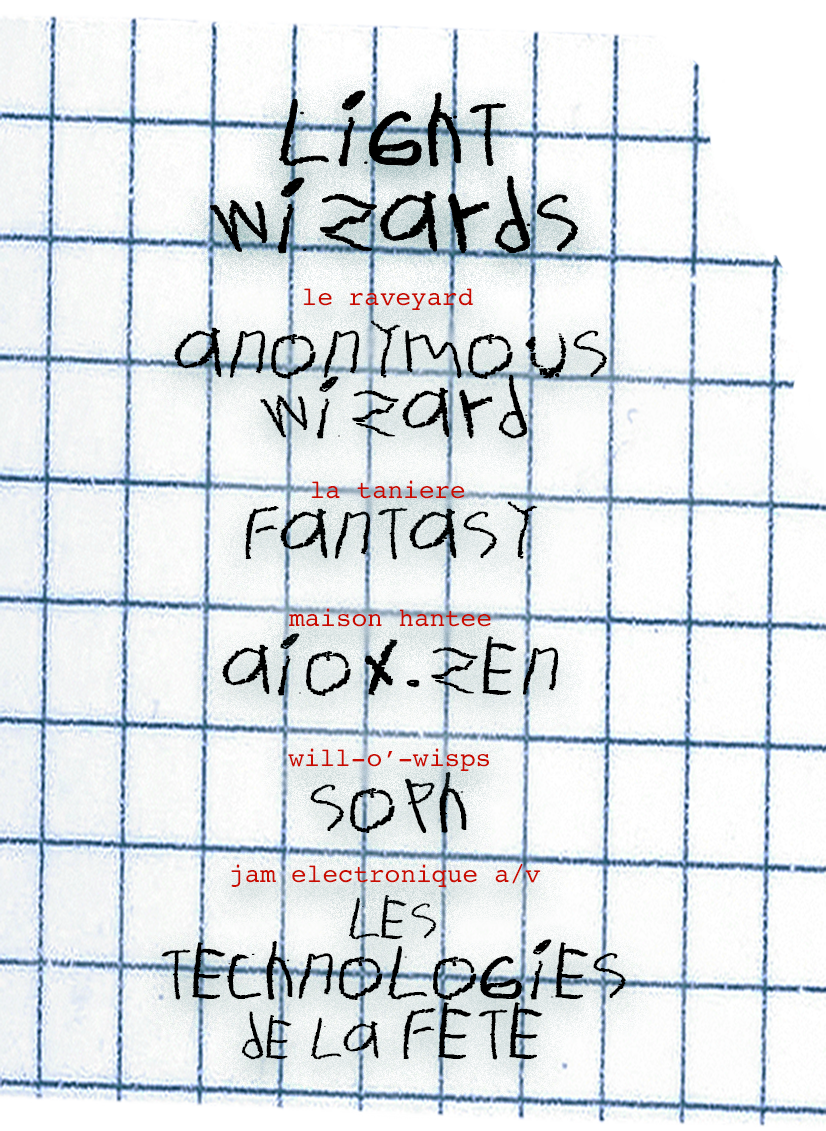 LiGhT
wizards
le raveyard
anonYmous
wizard
la taniere
FanTasY
maison hantee
aiox.zEn
will-o’-wisps
soPh
jam electronique a/v
LES
TEChnoLOGiES
dE La FETE